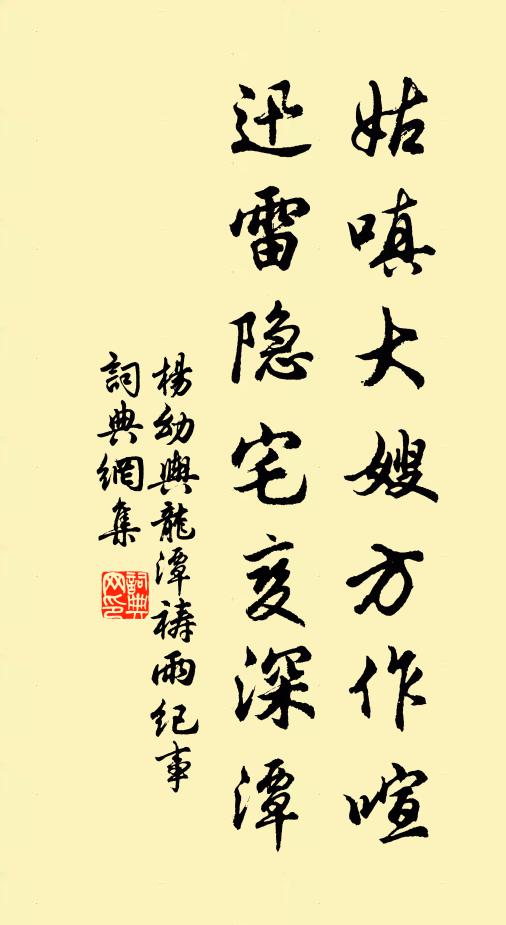 姑嗔大嫂方作喧
迅雷隐宅变深潭
楊幼輿龍潭禱雨纪事
詞典網集
詞典网印